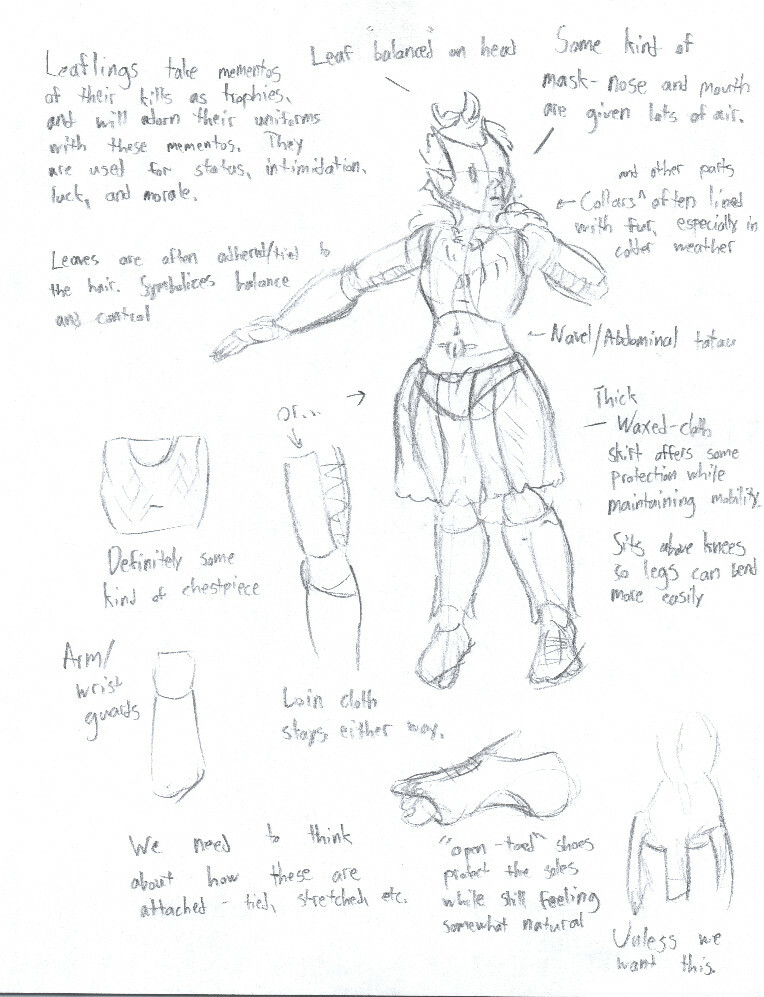 Leaf "balanced" on head
Some kind of
mask- nose and mouth
are given lots of air.
Leaflings take mementos
of their kills as trophies,
and will adorn their uniforms
with these mementos. They
are used for status, intimidation,
luck, and morale.
and other parts
Collars ^ often lined
with fur, especially in
colder weather
Leaves are often adhered/tied to
the hair. Symbolizes balance
and control
Navel/Abdominal tatau
Or...
Thick
Waxed-cloth
skirt offers some
protection while
maintaining mobility.
Sits above knees
so legs can bend
more easily
Definitely some
kind of chestpiece
Arm/
wrist
guards
Loin cloth
stays either way.
We need to think
about how these are
attached - tied, stretched, etc.
"open-toed" shoes
protect the soles
while still feeling
somewhat natural
Unless we
want this.